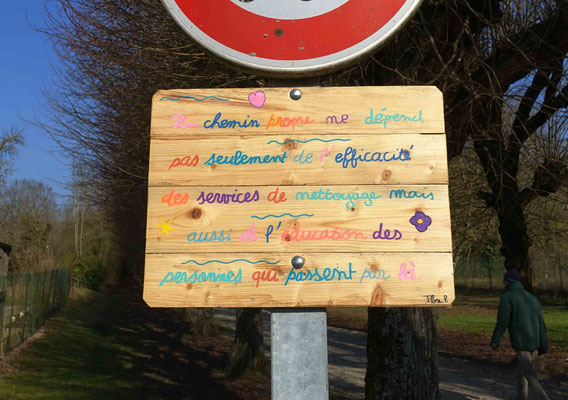 Un chemin propre ne dépend
pas seulement de l'efficacité
des services de nettoyage mais
aussi de l'éducation des
personnes qui passent par là